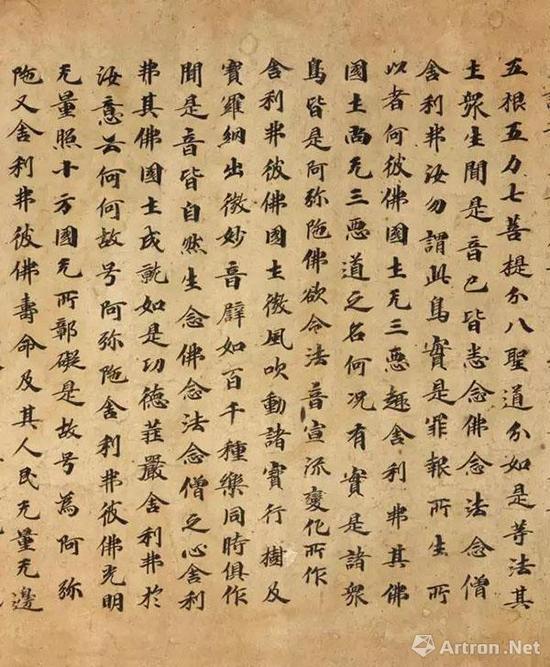 五根五力七菩提分八聖道分如是等法其
土衆生聞是音已皆悉念佛念法念僧
舍利弗汝勿謂此鳥實是罪報所生所
以者何彼佛國土无三惡趣舍利弗其佛
國土尚无三惡道之名何况有實是諸衆
鳥皆是阿弥陁佛欲令法音宣流變化所作
舍利弗彼佛國土微風吹動諸寳行樹及
寳羅網出微妙音譬如百千種樂同時俱作
聞是音皆自然生念佛念法念僧之心舍利
弗其佛國土成就如是功德莊嚴舍利弗於
汝意云何何故号阿弥陁舍利弗彼佛光明
无量照十方國无所鄣礙是故号為阿弥
陁又舍利弗彼佛壽命及其人民无量无邊
Artron.Net